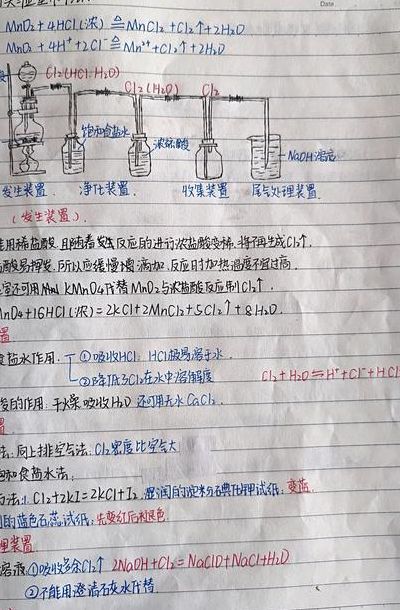 Date
MnO₂+4HCl(浓)≜MnCl₂+Cl₂↑+2H₂O
MnO₂+4H⁺+2Cl⁻≜Mn²⁺+Cl₂↑+2H₂O
Cl₂(HCl·H₂O) Cl₂(H₂O) Cl₂
饱和食盐水 浓硫酸 NaOH溶液
发生装置 净化装置. 收集装置 尾气处理装置.
(发生装置).
用稀盐酸,且随着反应的进行浓盐酸变稀,将不再生成Cl₂↑.
酸易挥发,所以应缓慢滴加,反应时加热温度不宜过高.
室还可用 KMnO₄代替MnO₂与浓盐酸反应制Cl₂↑.
nO₄+16HCl(浓)=2KCl+2MnCl₂+5Cl₂↑+8H₂O.
置
食盐水作用. ①吸收HCl. HCl极易溶于水.
②降低Cl₂在水中溶解度
Cl₂+H₂O⇌H⁺+Cl⁻+HCl
的作用. 干燥 吸收H₂O 还可用无水CaCl₂.
置
法:向上排空气法. Cl₂密度比空气大
和食盐水法;
方法: Cl₂+2KI=2KCl+I₂. 湿润的淀粉碘化钾试纸:变蓝.
的蓝色石蕊试纸:先变红后褪色.
理装置
溶液.①吸收多余Cl₂↑ 2NaOH+Cl₂=NaClO+NaCl+H₂O
②不能用澄清石灰水代替.